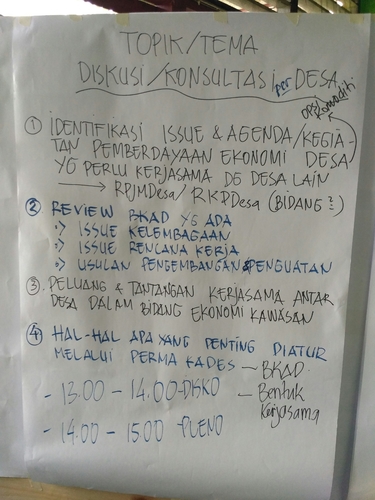 TOPIK/TEMA
DISKUSI/KONSULTASI per DESA
OPSI Komoditi
① IDENTIFIKASI ISSUE & AGENDA/KEGIA-
TAN PEMBERDAYAAN EKONOMI DESA
YG PERLU KERJASAMA DG DESA LAIN
→ RPJMDesa/ RKPDesa (BIDANG ?)
② REVIEW BKAD YG ADA
•> ISSUE KELEMBAGAAN
•> ISSUE RENCANA KERJA
•> USULAN PENGEMBANGAN & PENGUATAN
③ PELUANG & TANTANGAN KERJASAMA ANTAR
DESA DALAM BIDANG EKONOMI KAWASAN
④ HAL-HAL APA YANG PENTING DIATUR
MELALUI PERMA KADES – BKAD
– Bentuk Kerjasama
- 13.00 - 14.00 - DISKO
- 14.00 - 15.00 - PLENO